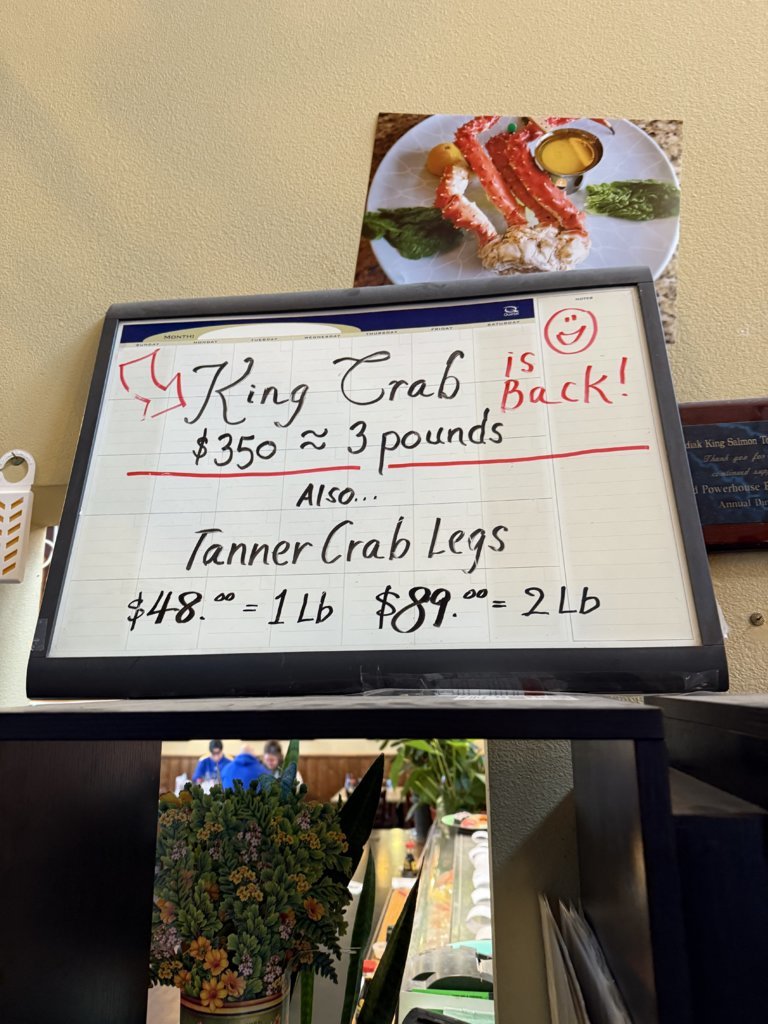 NOTES
MONTH:
SUNDAY MONDAY TUESDAY WEDNESDAY THURSDAY FRIDAY SATURDAY
King Crab is Back!
$350 ≈ 3 pounds
Also...
Tanner Crab Legs
$48.00 = 1 Lb $89.00 = 2 Lb
diak King Salmon
Thank you for
continued
Powerhouse
Annual